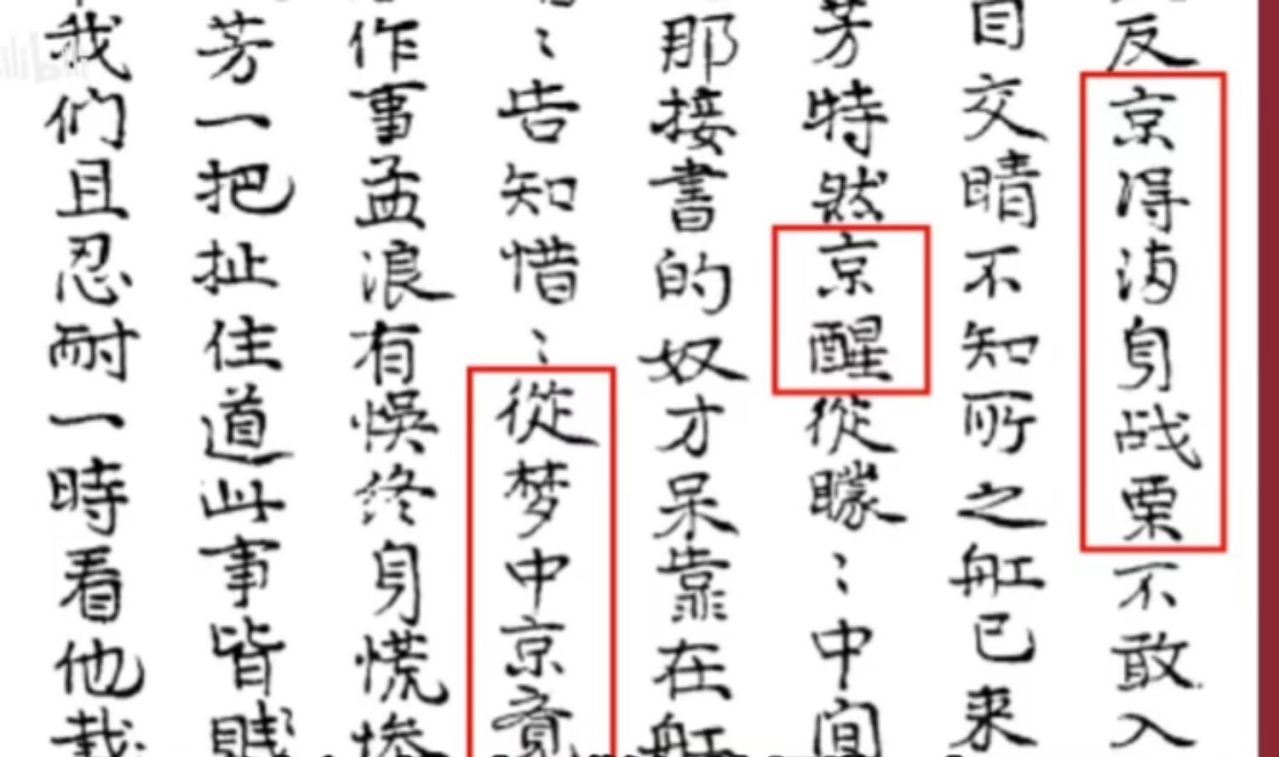 反京淂身战栗不敢入
目交睛不知所之舡已来
芳特然京醒從矇〻中间
那接書的奴才呆靠在舡
〻告知惜〻從梦中京
作事孟浪有悞终身慌惨
芳一把扯住道此事皆賤
我们且忍耐一時看他